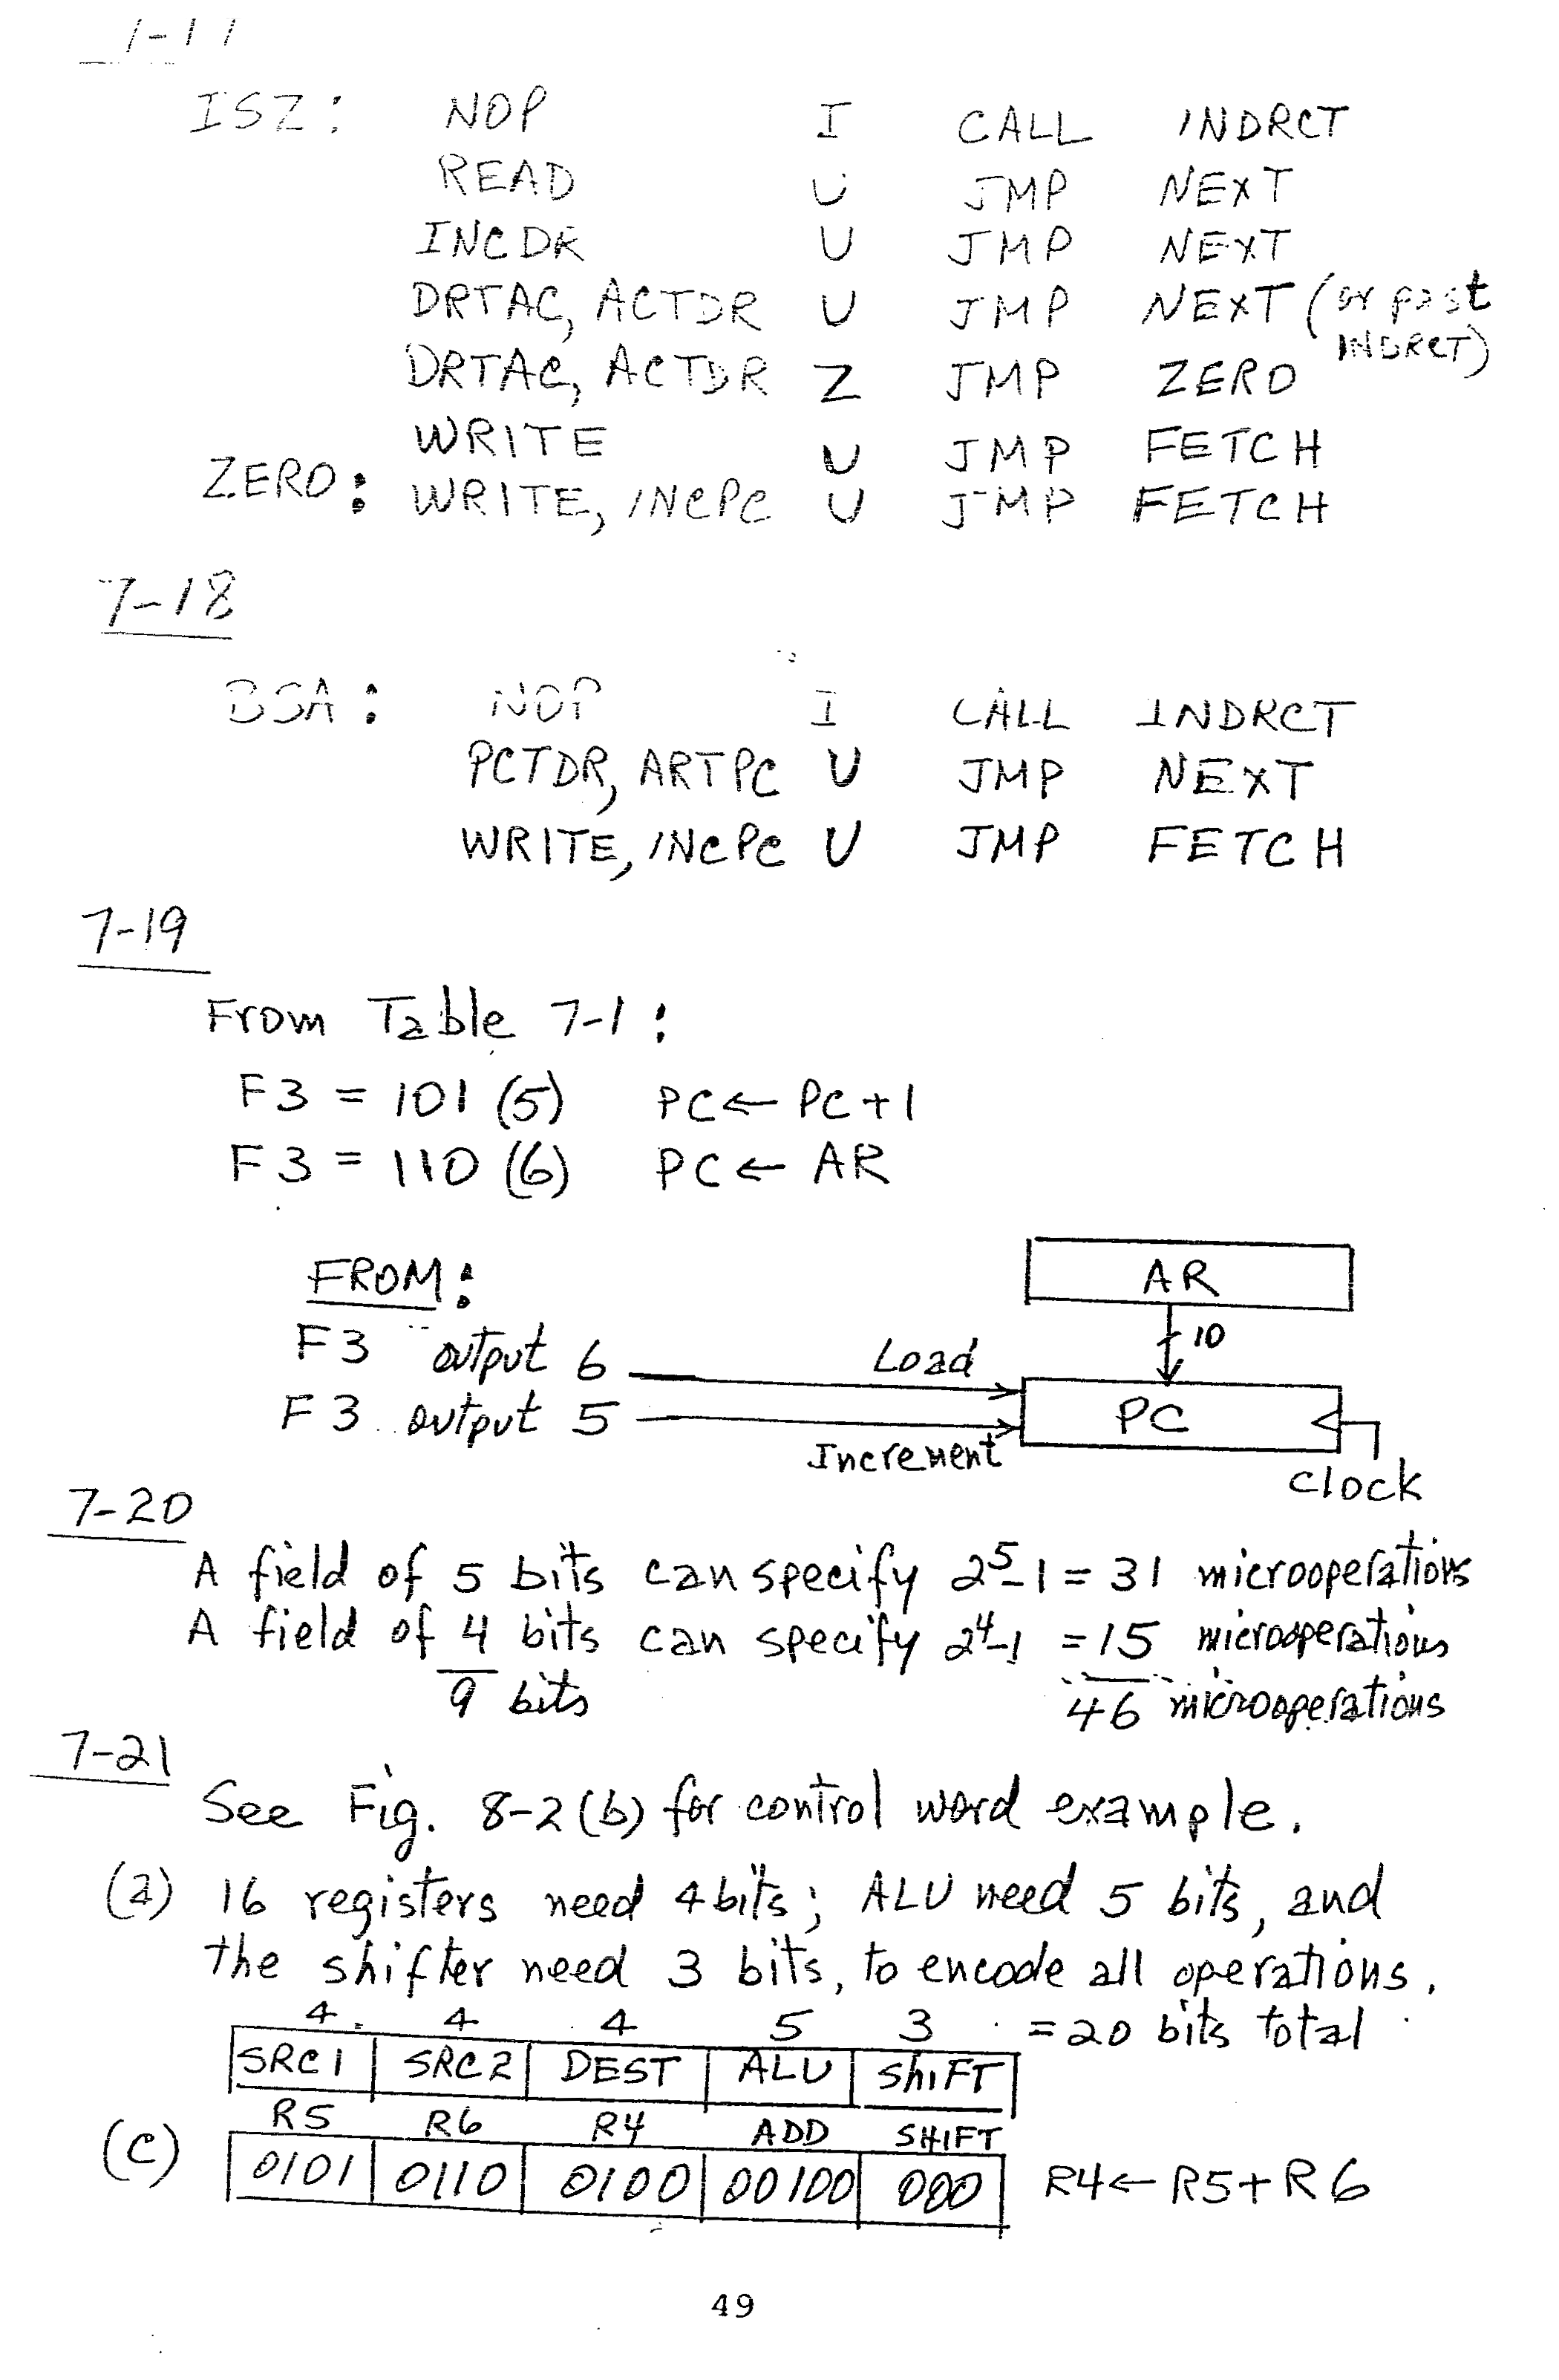 ISZ: NOP I CALL INDRCT
READ U JMP NEXT
INCDR U JMP NEXT
DRTAC, ACTDR U JMP NEXT (or past INDRCT)
DRTAC, ACTDR Z JMP ZERO
WRITE U JMP FETCH
ZERO: WRITE, INCPC U JMP FETCH
7-18
BSA: NOP I CALL INDRCT
PCTDR, ARTPC U JMP NEXT
WRITE, INCPC U JMP FETCH
7-19
From Table 7-1:
F3 = 101 (5) PC ← PC + 1
F3 = 110 (6) PC ← AR
FROM:
AR
10
F3 output 6 Load
F3 output 5 PC
Increment
Clock
7-20
A field of 5 bits can specify 2⁵-1 = 31 microoperations
A field of 4 bits can specify 2⁴-1 = 15 microoperations
9 bits 46 microoperations
7-21
See Fig. 8-2(b) for control word example.
(a) 16 registers need 4 bits; ALU need 5 bits, and
the shifter need 3 bits, to encode all operations.
4 4 4 5 3 = 20 bits total
SRC1 SRC2 DEST ALU ShiFT
R5 R6 R4 ADD SHIFT
(c) 0101 0110 0100 00100 000 R4 ← R5 + R6
49